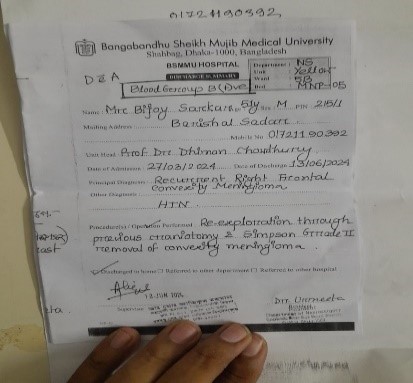 01721190392,
Bangabandhu Sheikh Mujib Medical University
Shahbag, Dhaka-1000, Bangladesh
BSMMU HOSPITAL
DISCHARGE SUMMARY
D & A
Blood Group B(+)ve
Department : NS
Unit : Yellow
Ward : 5B
Bed : MNP-05
Name : Mr. Bijoy Sarkar 51y Sex M PIN 215/1
Mailing Address Barishal Sadar
Mobile No 01721190392
Unit Head Prof Dr. Dhiman Chowdhurry
Date of Admission : 27/03/2024 Date of Discharge 13/06/2024
Principal Diagnosis Recurrent Right Frontal convexity Meningioma
Other Diagnosis
HTN
Procedure(s) / Operation Performed Re-exploration through
previous craniotomy & Simpson Grade II
removal of convexity meningioma.
Discharged to home Referred to other department Referred to other hospital
13 JUN 2024